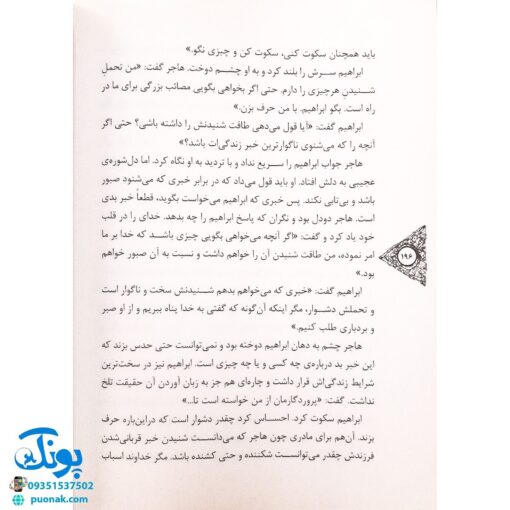 باید همچنان سکوت کنی، سکوت کن و چیزی نگو.»
ابراهیم سرش را بلند کرد و به او چشم دوخت. هاجر گفت: «من تحمل
شنیدنِ هرچیزی را دارم. حتی اگر بخواهی بگویی مصائب بزرگی برای ما در
راه است. بگو ابراهیم. با من حرف بزن.»
ابراهیم گفت: «آیا قول می‌دهی طاقت شنیدنش را داشته باشی؟ حتی اگر
آنچه را که می‌شنوی ناگوارترین خبر زندگی‌ات باشد؟»
هاجر جواب ابراهیم را سریع نداد و با تردید به او نگاه کرد. اما دل‌شوره‌ی
عجیبی به دلش افتاد. او باید قول می‌داد که در برابر خبری که می‌شنود صبور
باشد و بی‌تابی نکند. پس خبری که ابراهیم می‌خواست بگوید، قطعاً خبر بدی
است. هاجر دودل بود و نگران که پاسخ ابراهیم را چه بدهد. خدای را در قلب
خود یاد کرد و گفت: «اگر آنچه می‌خواهی بگویی چیزی باشد که خدا بر ما
امر نموده، من طاقت شنیدن آن را خواهم داشت و نسبت به آن صبور خواهم
بود.»
۱۹۶
ابراهیم گفت: «خبری که می‌خواهم بدهم شنیدنش سخت و ناگوار است
و تحملش دشوار، مگر اینکه آن‌گونه که گفتی به خدا پناه ببریم و از او صبر
و بردباری طلب کنیم.»
هاجر چشم به دهان ابراهیم دوخته بود و نمی‌توانست حتی حدس بزند که
این خبر بد درباره‌ی چه کسی و یا چه چیزی است. ابراهیم نیز در سخت‌ترین
شرایط زندگی‌اش قرار داشت و چاره‌ای هم جز به زبان آوردن آن حقیقت تلخ
نداشت. گفت: «پروردگارمان از من خواسته است تا...»
ابراهیم سکوت کرد. احساس کرد چقدر دشوار است که دراین‌باره حرف
بزند. آن‌هم برای مادری چون هاجر که می‌دانست شنیدن خبر قربانی‌شدن
فرزندش چقدر می‌توانست شکننده و حتی کشنده باشد. مگر خداوند اسباب
پونک
09351537502
puonak.com